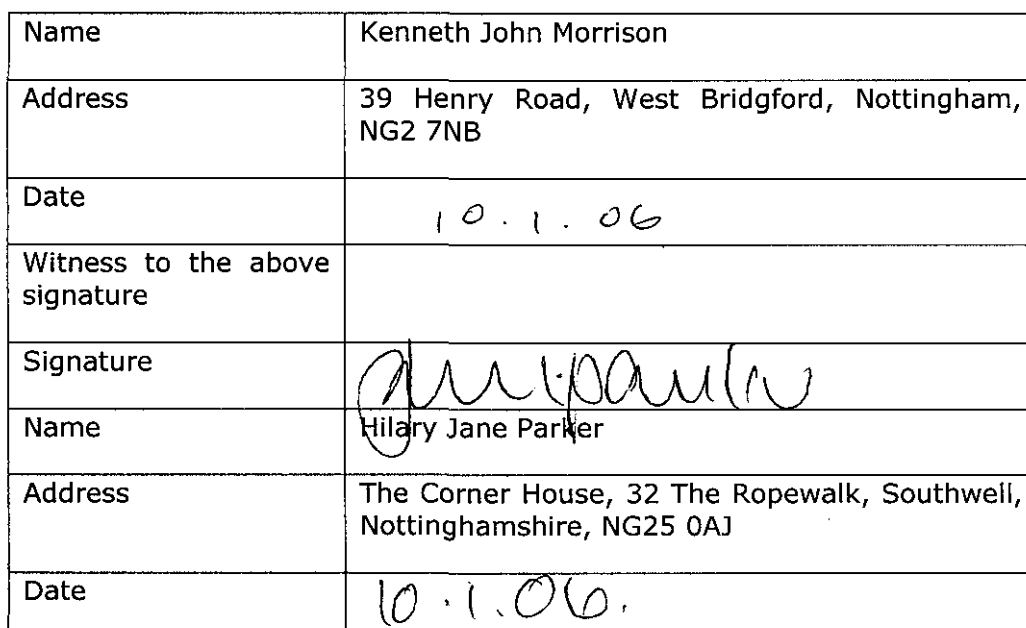 Name Kenneth John Morrison
Address 39 Henry Road, West Bridgford, Nottingham,
NG2 7NB
Date 10.1.06
Witness to the above
signature
Signature
Name Hilary Jane Parker
Address The Corner House, 32 The Ropewalk, Southwell,
Nottinghamshire, NG25 0AJ
Date 10.1.06.